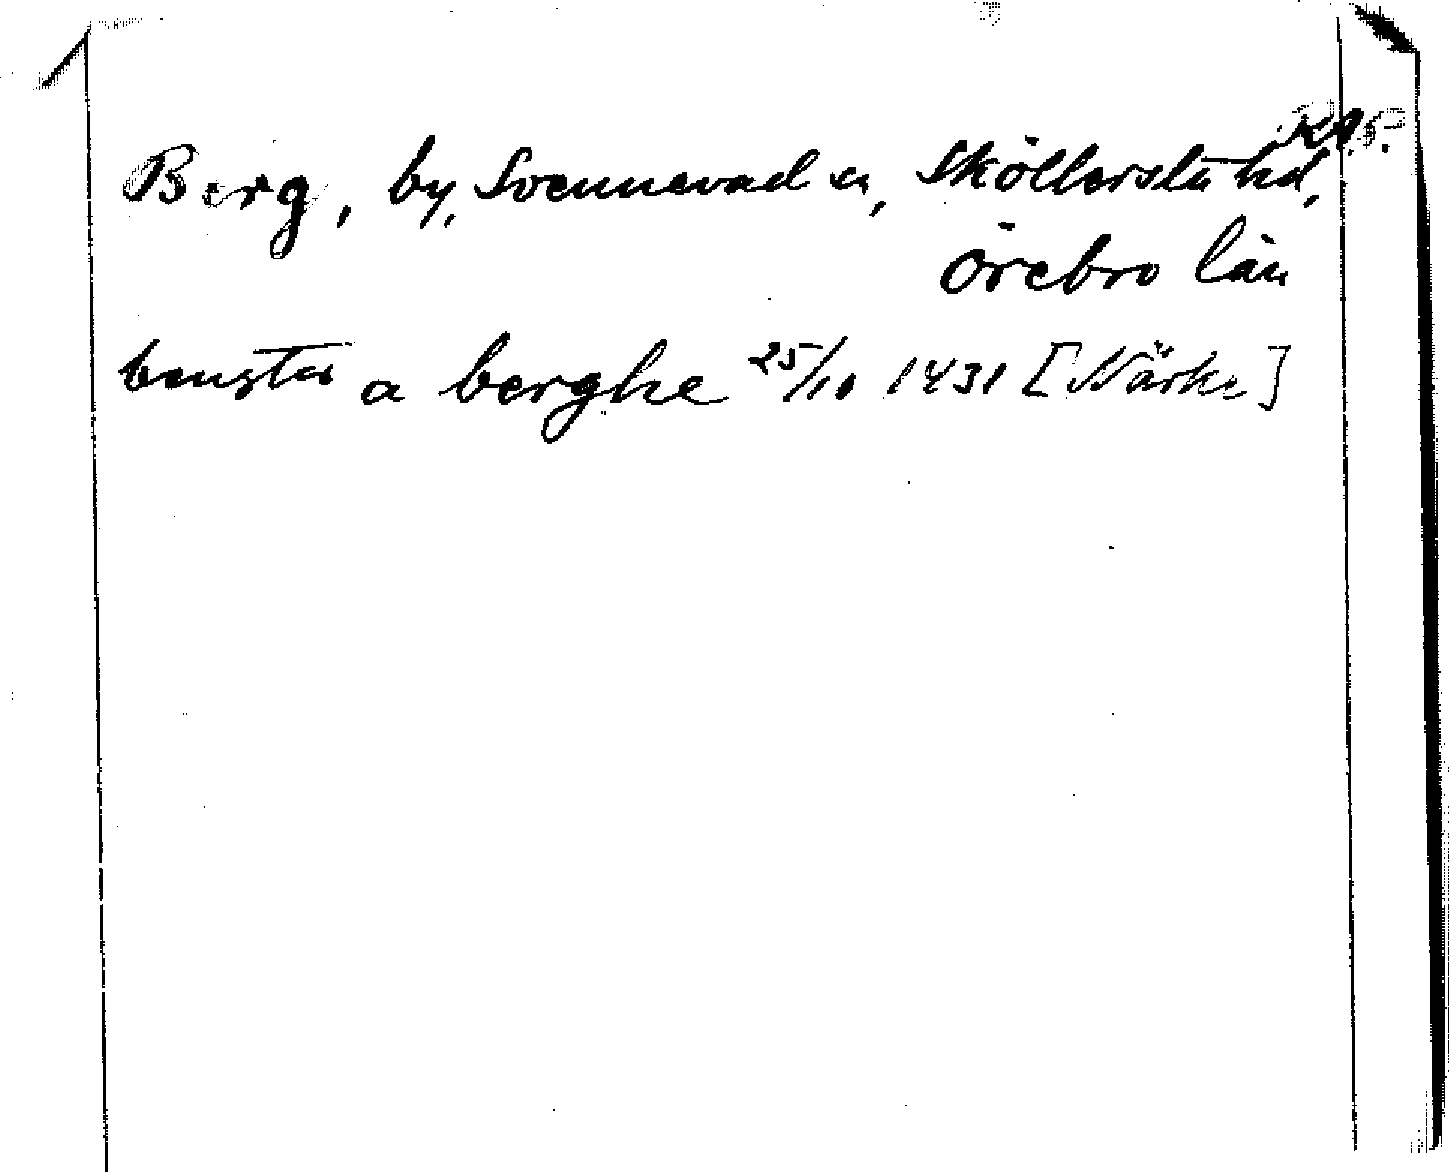 R.A.P.
Berg, by, Svennevad sn, Sköllerstu hd,
Örebro län
a berghe 25/10 1431 [Närke]